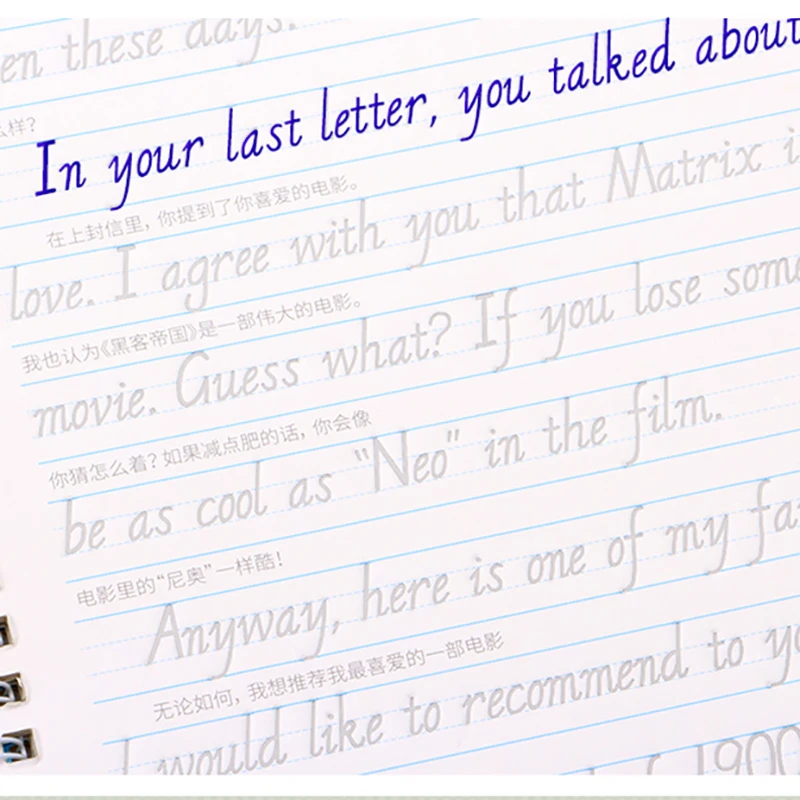 en these days.
么样?
In your last letter, you talked about
在上封信里，你提到了你喜爱的电影。
love. I agree with you that Matrix
我也认为《黑客帝国》是一部伟大的电影。
movie. Guess what? If you lose some
你猜怎么着？如果减点肥的话，你会像
be as cool as "Neo" in the film.
电影里的“尼奥”一样酷！
Anyway, here is one of my fa
无论如何，我想推荐我最喜爱的一部电影
I would like to recommend to yo
1900